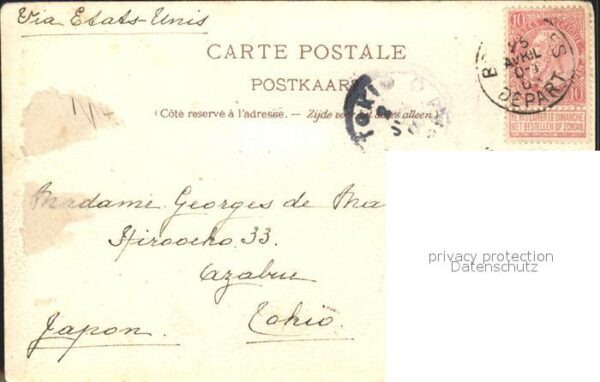 Via Etats-Unis
CARTE POSTALE
POSTKAAR
(Côté reservé à l'adresse. — Zijde voor adres alleen)
10 10
15
AVRIL
DEPART
10
NE PAS LIVRER LE DIMANCHE
NIET BESTELLEN OP ZONDAG
TOKIO
Madame Georges de Ma
Hiroocho 33.
Azabu
Tokio.
Japon.
privacy protection
Datenschutz